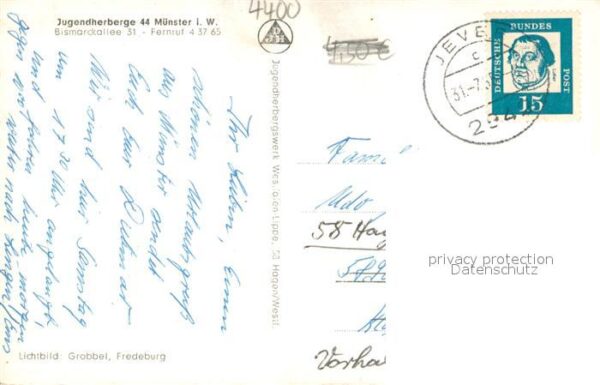 Jugendherberge 44 Münster i. W.
Bismarckallee 31 - Fernruf 4 37 65
4400
4,50 €
Ihr Lieben, einen
schönen Urlaubsgruß
aus Münster sendet
Euch Eur Dietmar
Wir sind hier Samstag
um 17.30 Uhr angelangt,
und fahren heute morgen
gegen
weiter nach Lingen/Ems
Jugendherbergswerk Westfalen-Lippe, 58 Hagen/Westf.
Lichtbild: Grobbel, Fredeburg
JEVE
31.-7.6
294
DEUTSCHE BUNDES POST
Luther
15
Famil
Udo
58 Hag
Vorha
privacy protection
Datenschutz